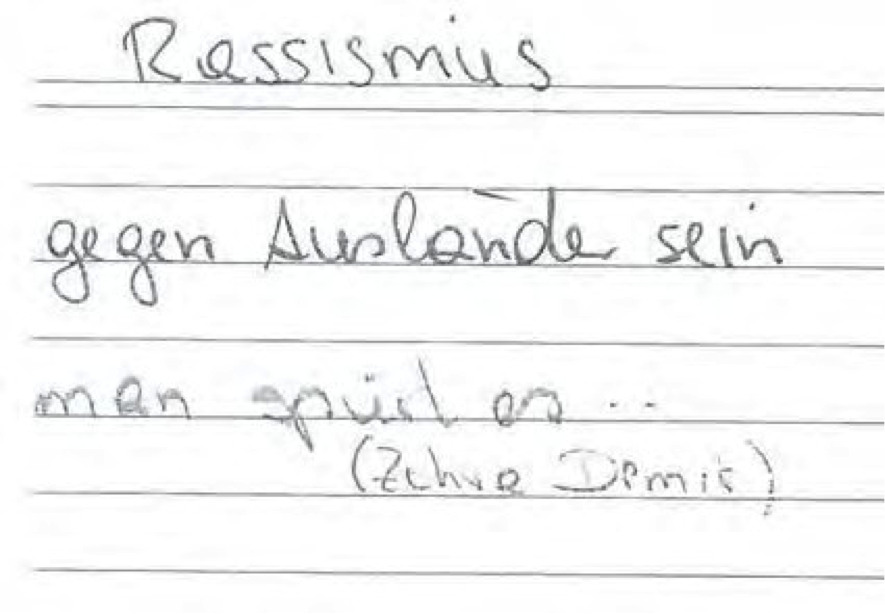 Rassismus
gegen Ausländer sein
man spürt es ..
(Zehra Demir)